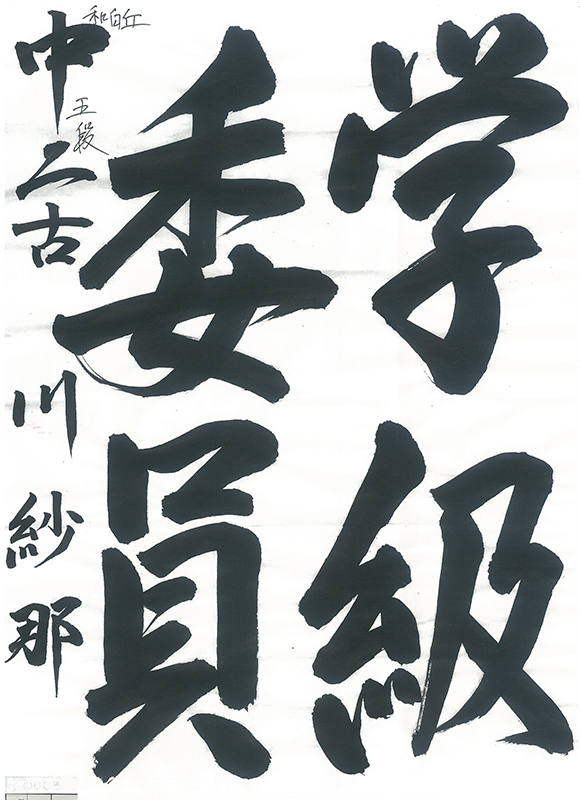 学級
委員
和白丘
五段
中二古川紗那